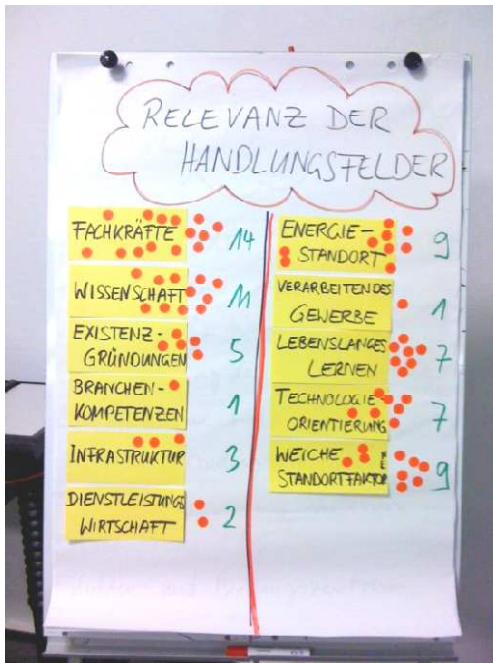 RELEVANZ DER
HANDLUNGSFELDER
FACHKRÄFTE 14
WISSENSCHAFT 11
EXISTENZ-
GRÜNDUNGEN 5
BRANCHEN-
KOMPETENZEN 1
INFRASTRUKTUR 3
DIENSTLEISTUNGS
WIRTSCHAFT 2
ENERGIE-
STANDORT 9
VERARBEITENDES
GEWERBE 1
LEBENSLANGES
LERNEN 7
TECHNOLOGIE-
ORIENTIERUNG 7
WEICHE
STANDORTFAKTOREN 9